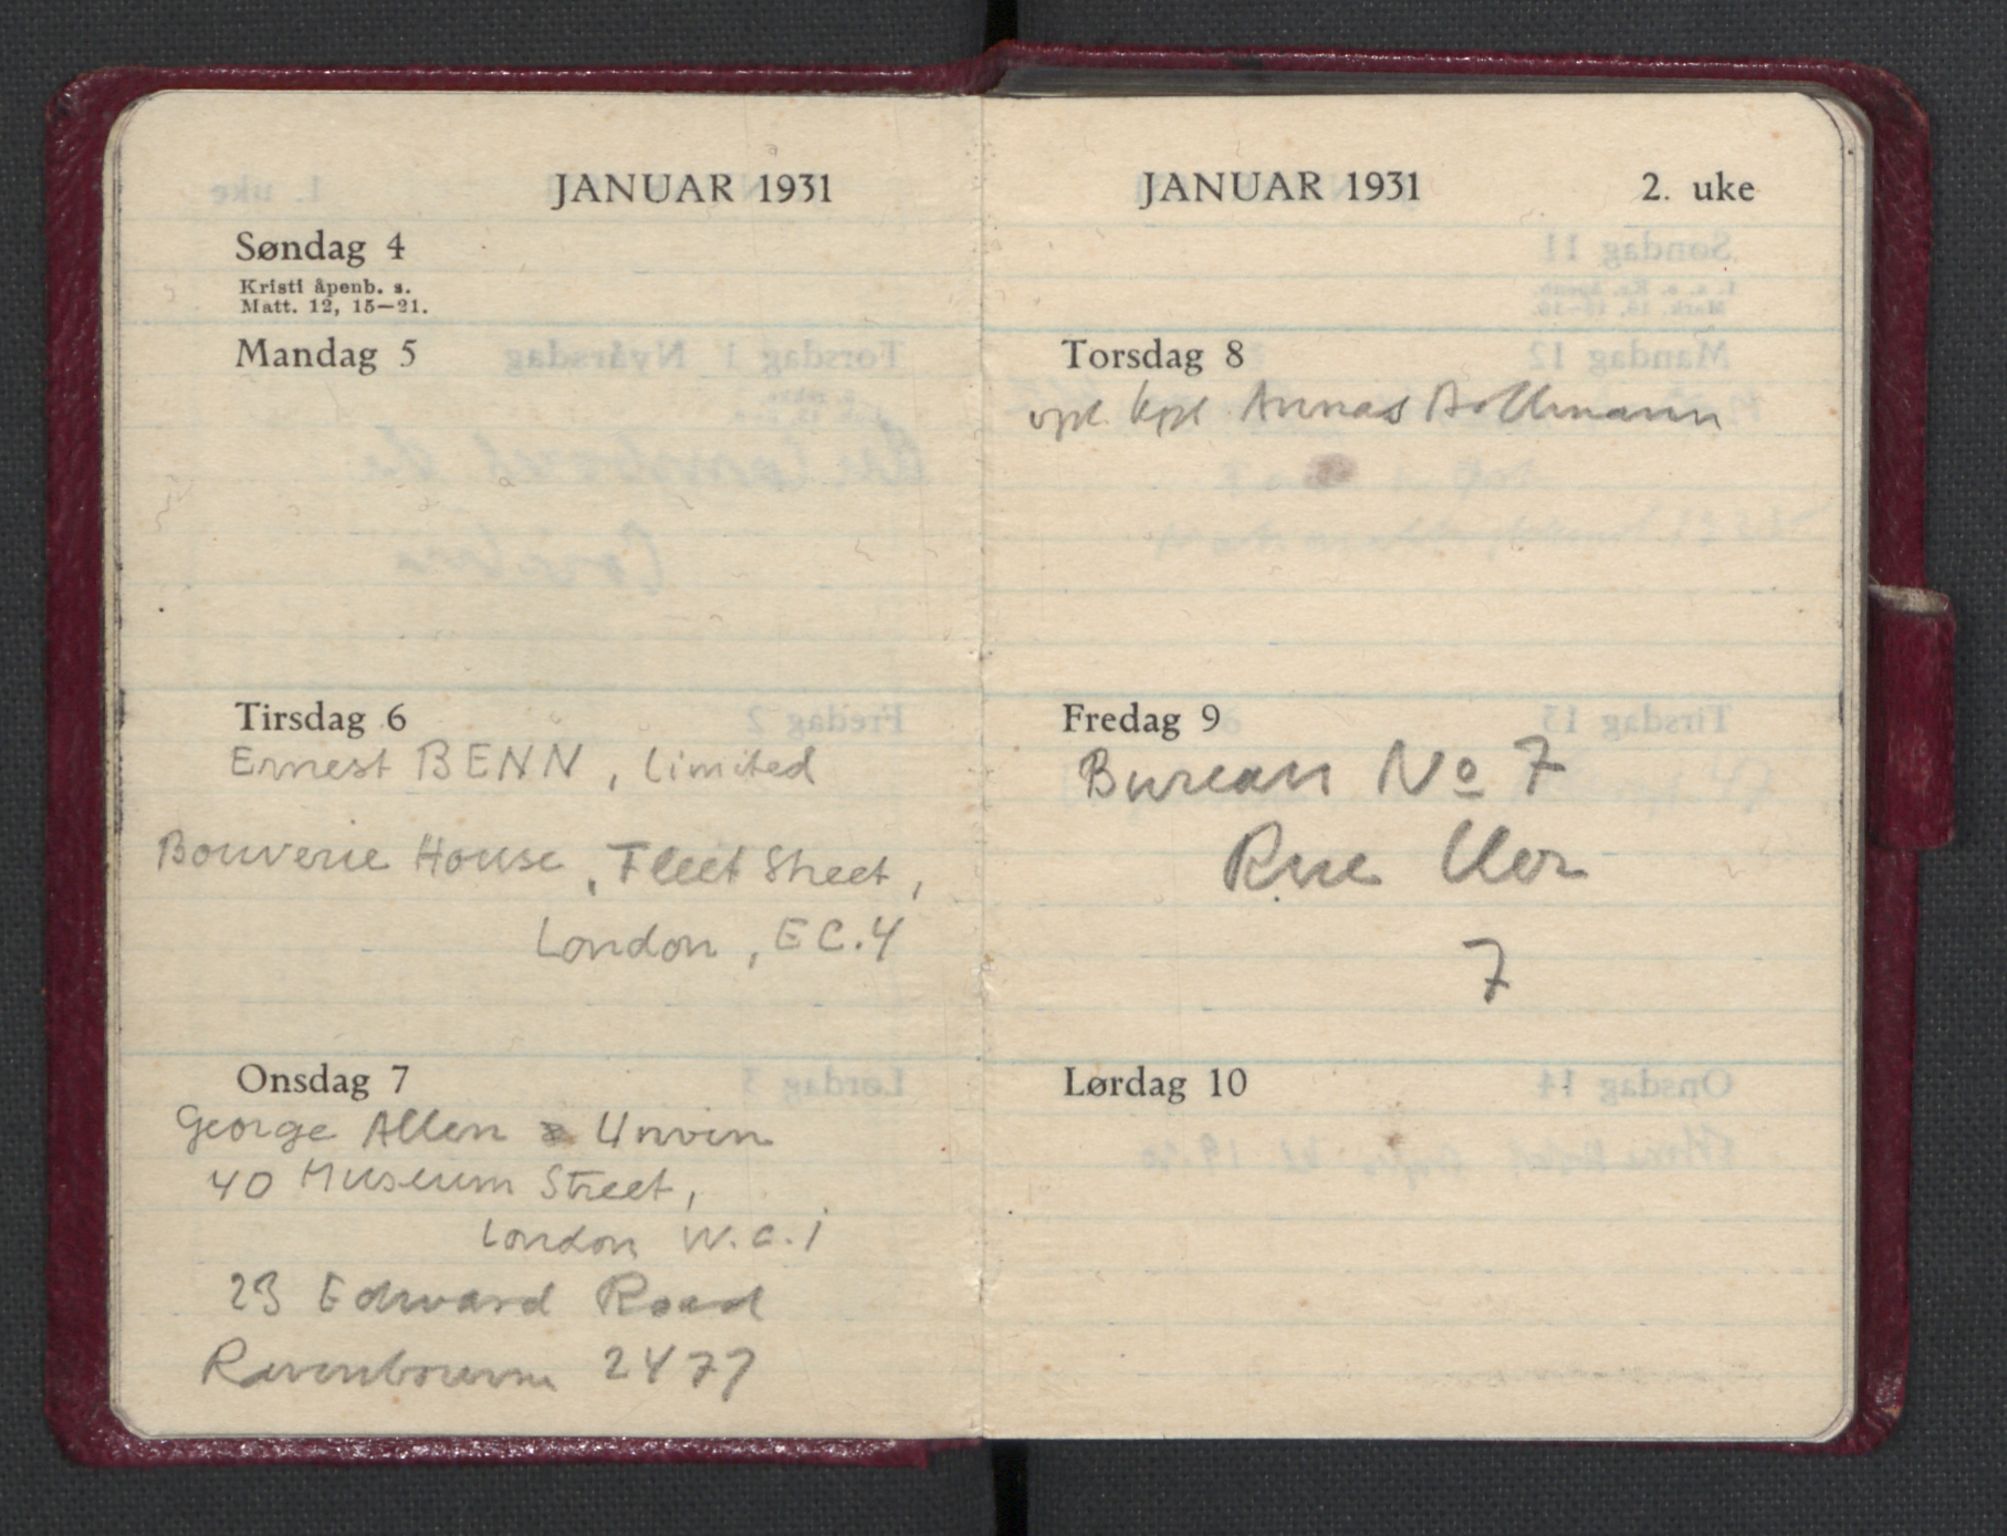 JANUAR 1931
Søndag 4
Kristi åpenb. s.
Matt. 12, 15—21.
Mandag 5
Tirsdag 6
Ernest BENN, Limited
Bouverie House, Fleet Street,
London, E C. 4
Onsdag 7
George Allen & Unwin
40 Museum Street,
London W. C. 1
23 Edward Road
Ravensbourne 2477
JANUAR 1931 2. uke
Torsdag 8
Annas
Fredag 9
Bureau No 7
Rue
7
Lørdag 10